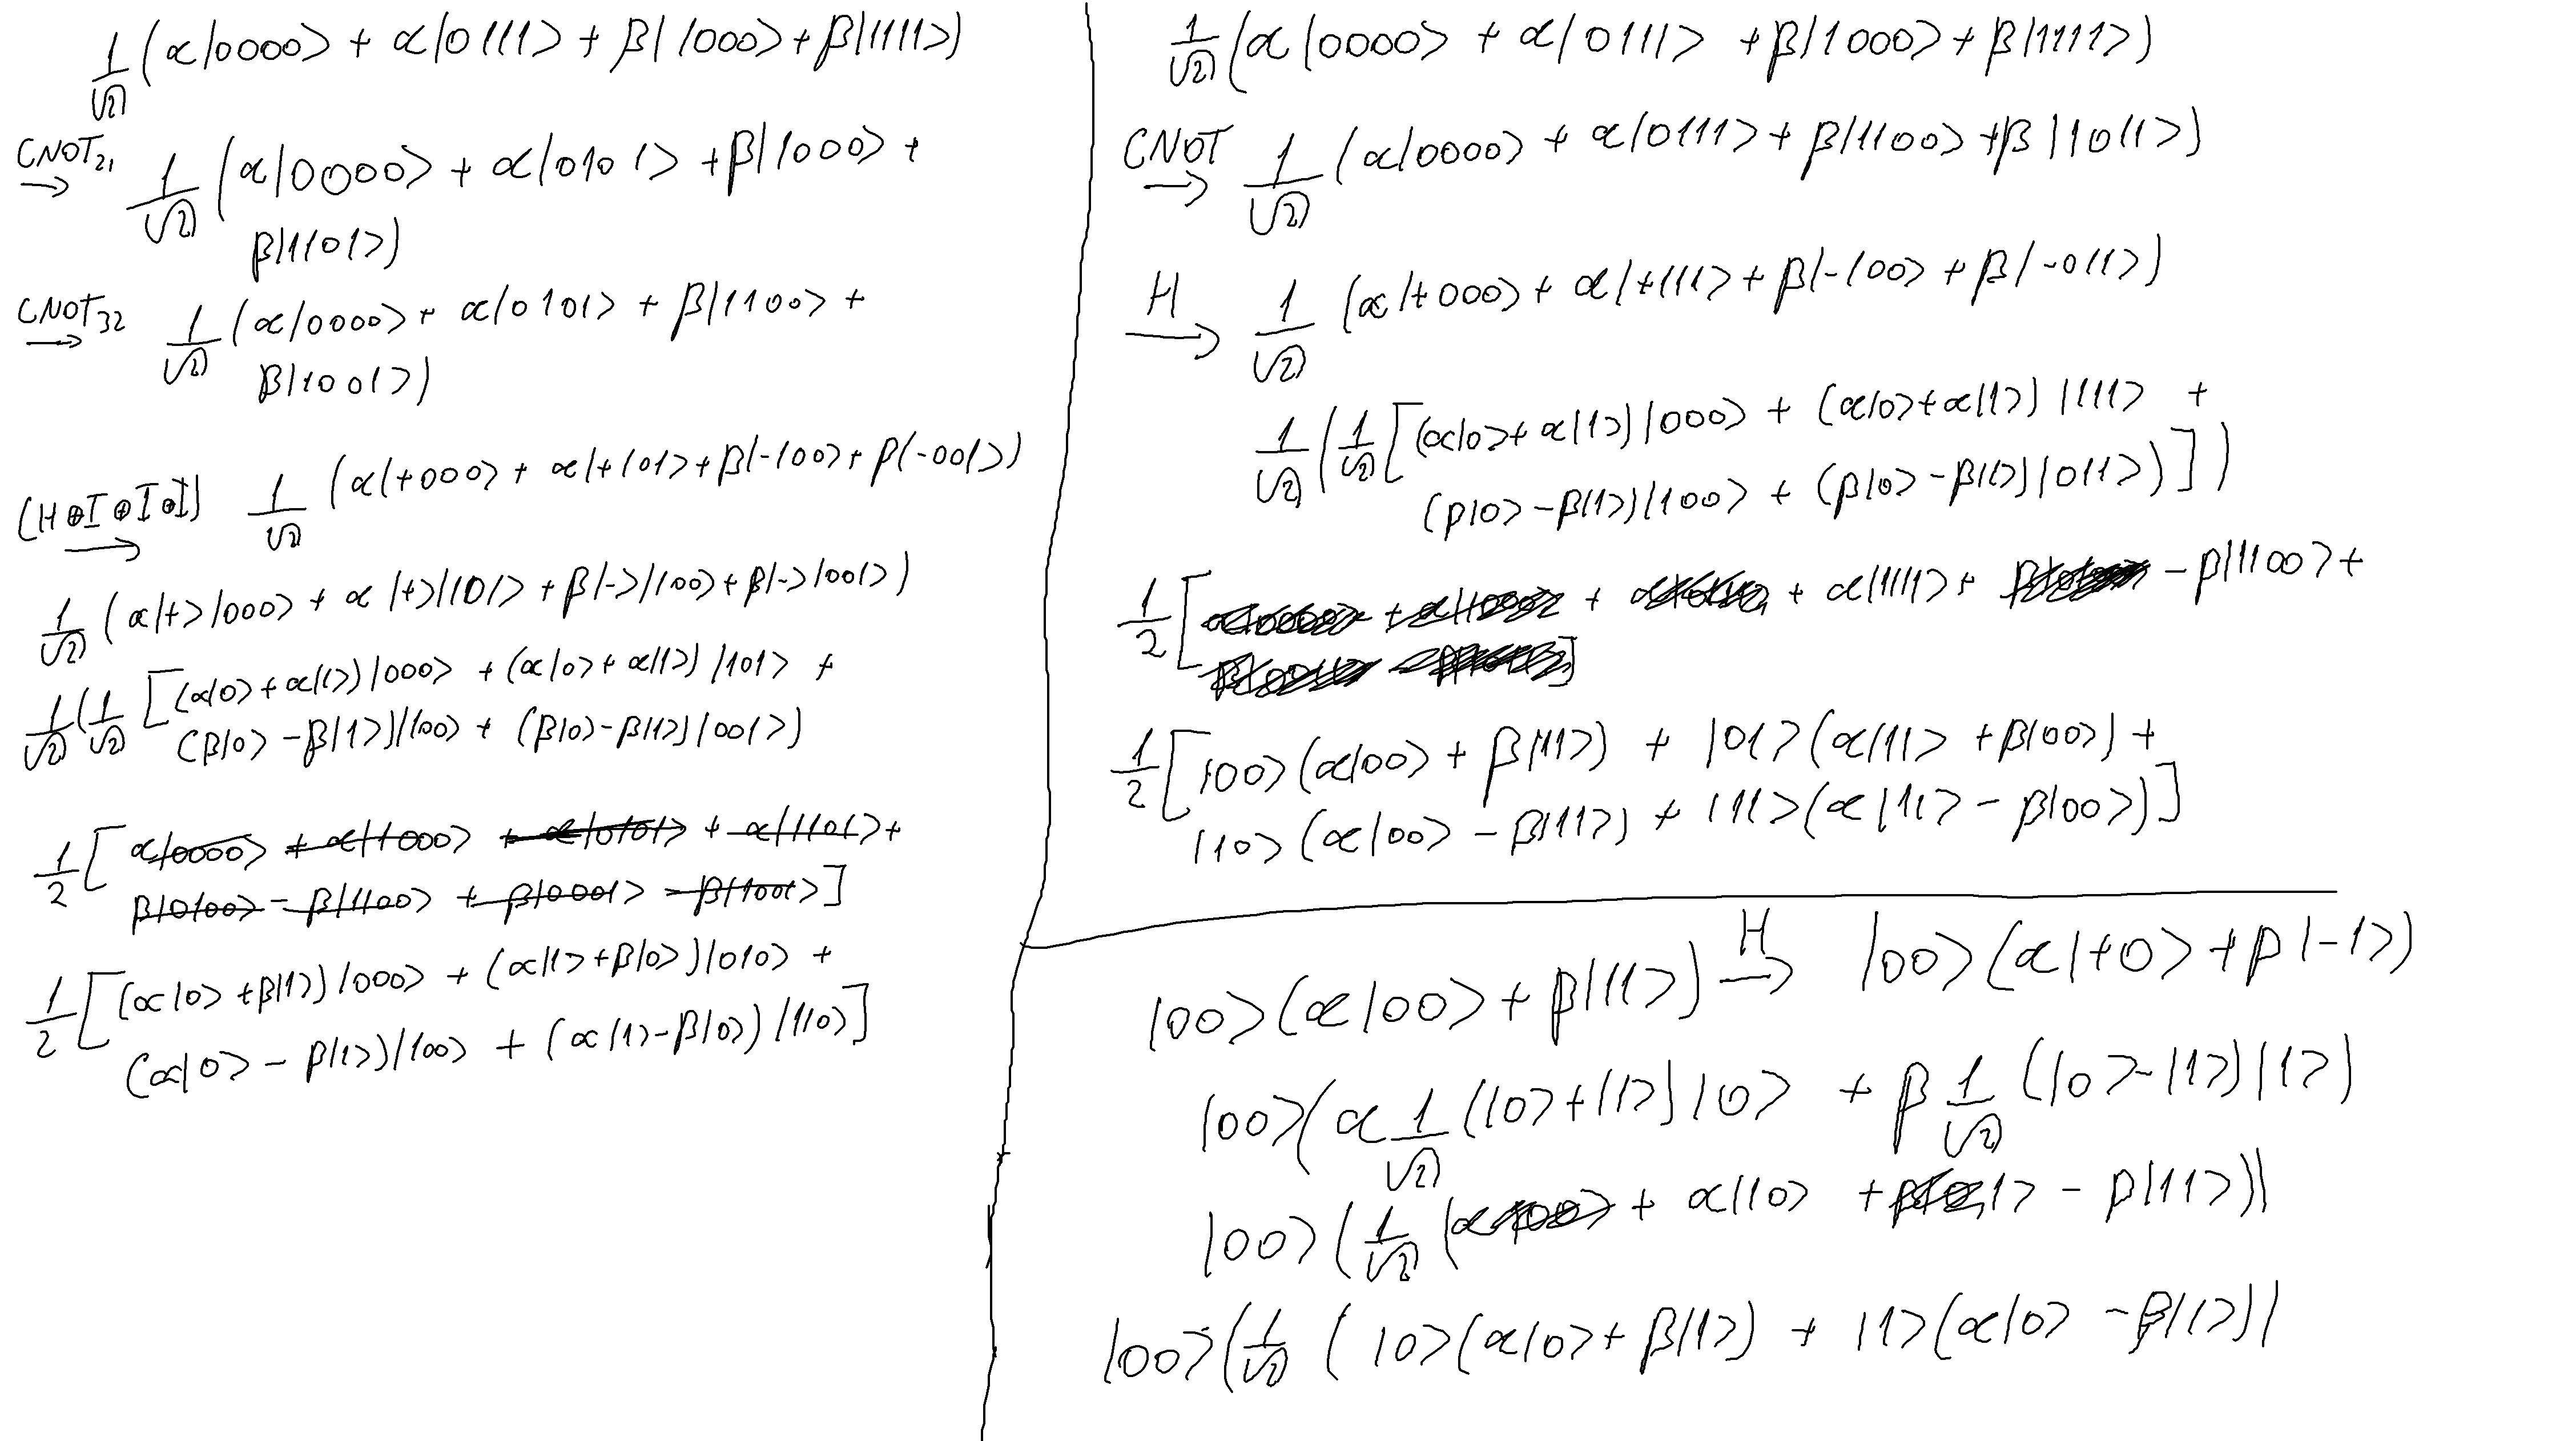 1/√2 (α|0000> + α|0111> + β|1000> + β|1111>)
CNOT₂₁ → 1/√2 (α|0000> + α|0101> + β|1000> +
β|1101>)
CNOT₃₂ → 1/√2 (α|0000> + α|0101> + β|1100> +
β|1001>)
(H⊗I⊗I⊗I) → 1/√2 (α|+000> + α|+101> + β|-100> + β|-001>)
1/√2 (α|+>|000> + α|+>|101> + β|->|100> + β|->|001>)
1/√2 (1/√2 [(α|0> + α|1>)|000> + (α|0> + α|1>)|101> +
(β|0> - β|1>)|100> + (β|0> - β|1>)|001>)
1/2 [α|0000> + α|1000> + α|0101> + α|1101> +
β|0100> - β|1100> + β|0001> - β|1001>]
1/2 [(α|0> + β|1>)|000> + (α|1> + β|0>)|010> +
(α|0> - β|1>)|100> + (α|1> - β|0>)|110>]
1/√2 (α|0000> + α|0111> + β|1000> + β|1111>)
CNOT → 1/√2 (α|0000> + α|0111> + β|1100> + β|1011>)
H → 1/√2 (α|+000> + α|+111> + β|-100> + β|-011>)
1/√2 (1/√2 [(α|0> + α|1>)|000> + (α|0> + α|1>)|111> +
(β|0> - β|1>)|100> + (β|0> - β|1>)|011>)])
1/2 [ + + α|1111> + - β|1100> +
]
1/2 [|00>(α|00> + β|11>) + |01>(α|11> + β|00>) +
|10>(α|00> - β|11>) + |11>(α|11> - β|00>)]
|00>(α|00> + β|11>) H → |00>(α|+0> + β|-1>)
|00>(α 1/√2 (|0> + |1>)|0> + β 1/√2 (|0> - |1>)|1>)
|00>(1/√2 ( + α|10> + 1> - β|11>))
|00>(1/√2 (|0>(α|0> + β|1>) + |1>(α|0> - β|1>))